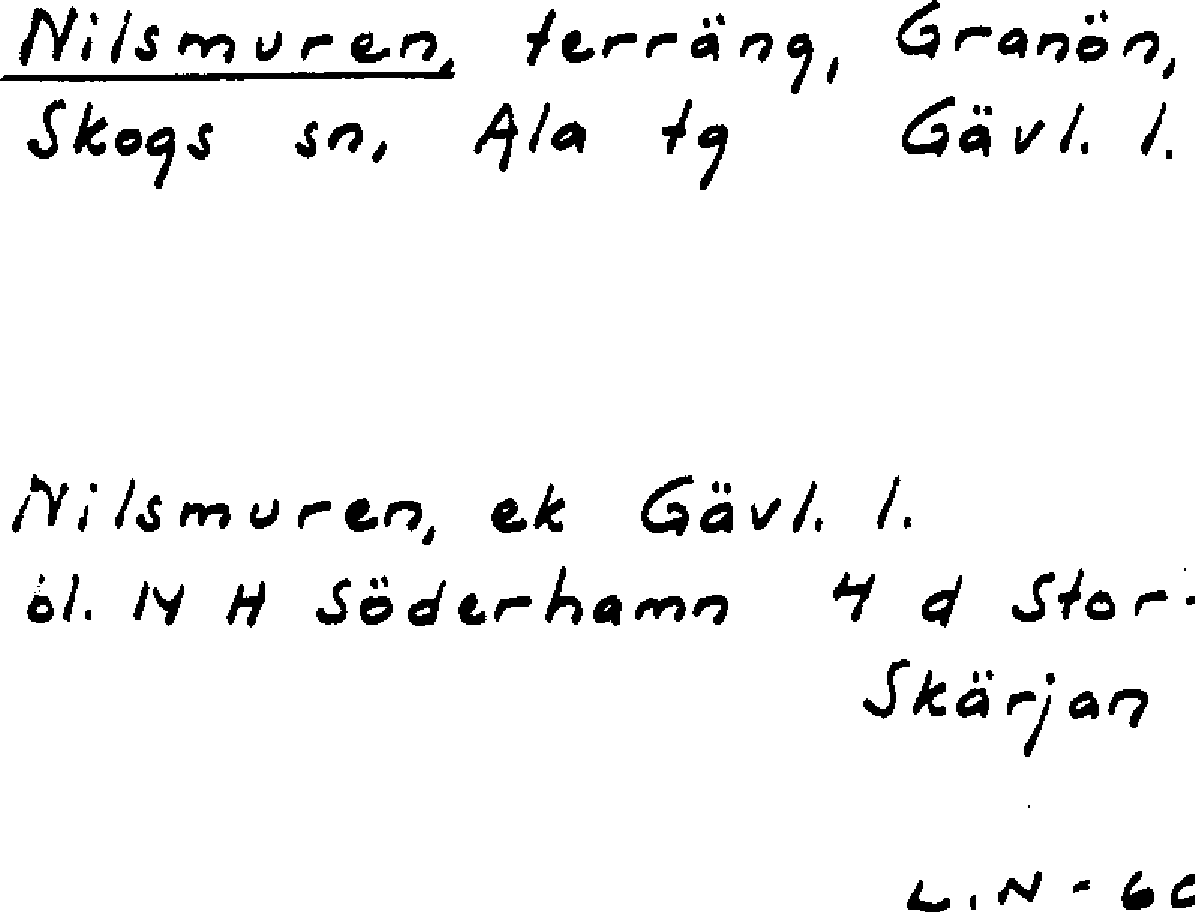 Nilsmuren, terräng, Granön,
Skogs sn, Ala tg Gävl. l.
Nilsmuren, ek Gävl. l.
bl. 14 H Söderhamn 4 d Stor-
Skärjan
L.N-60